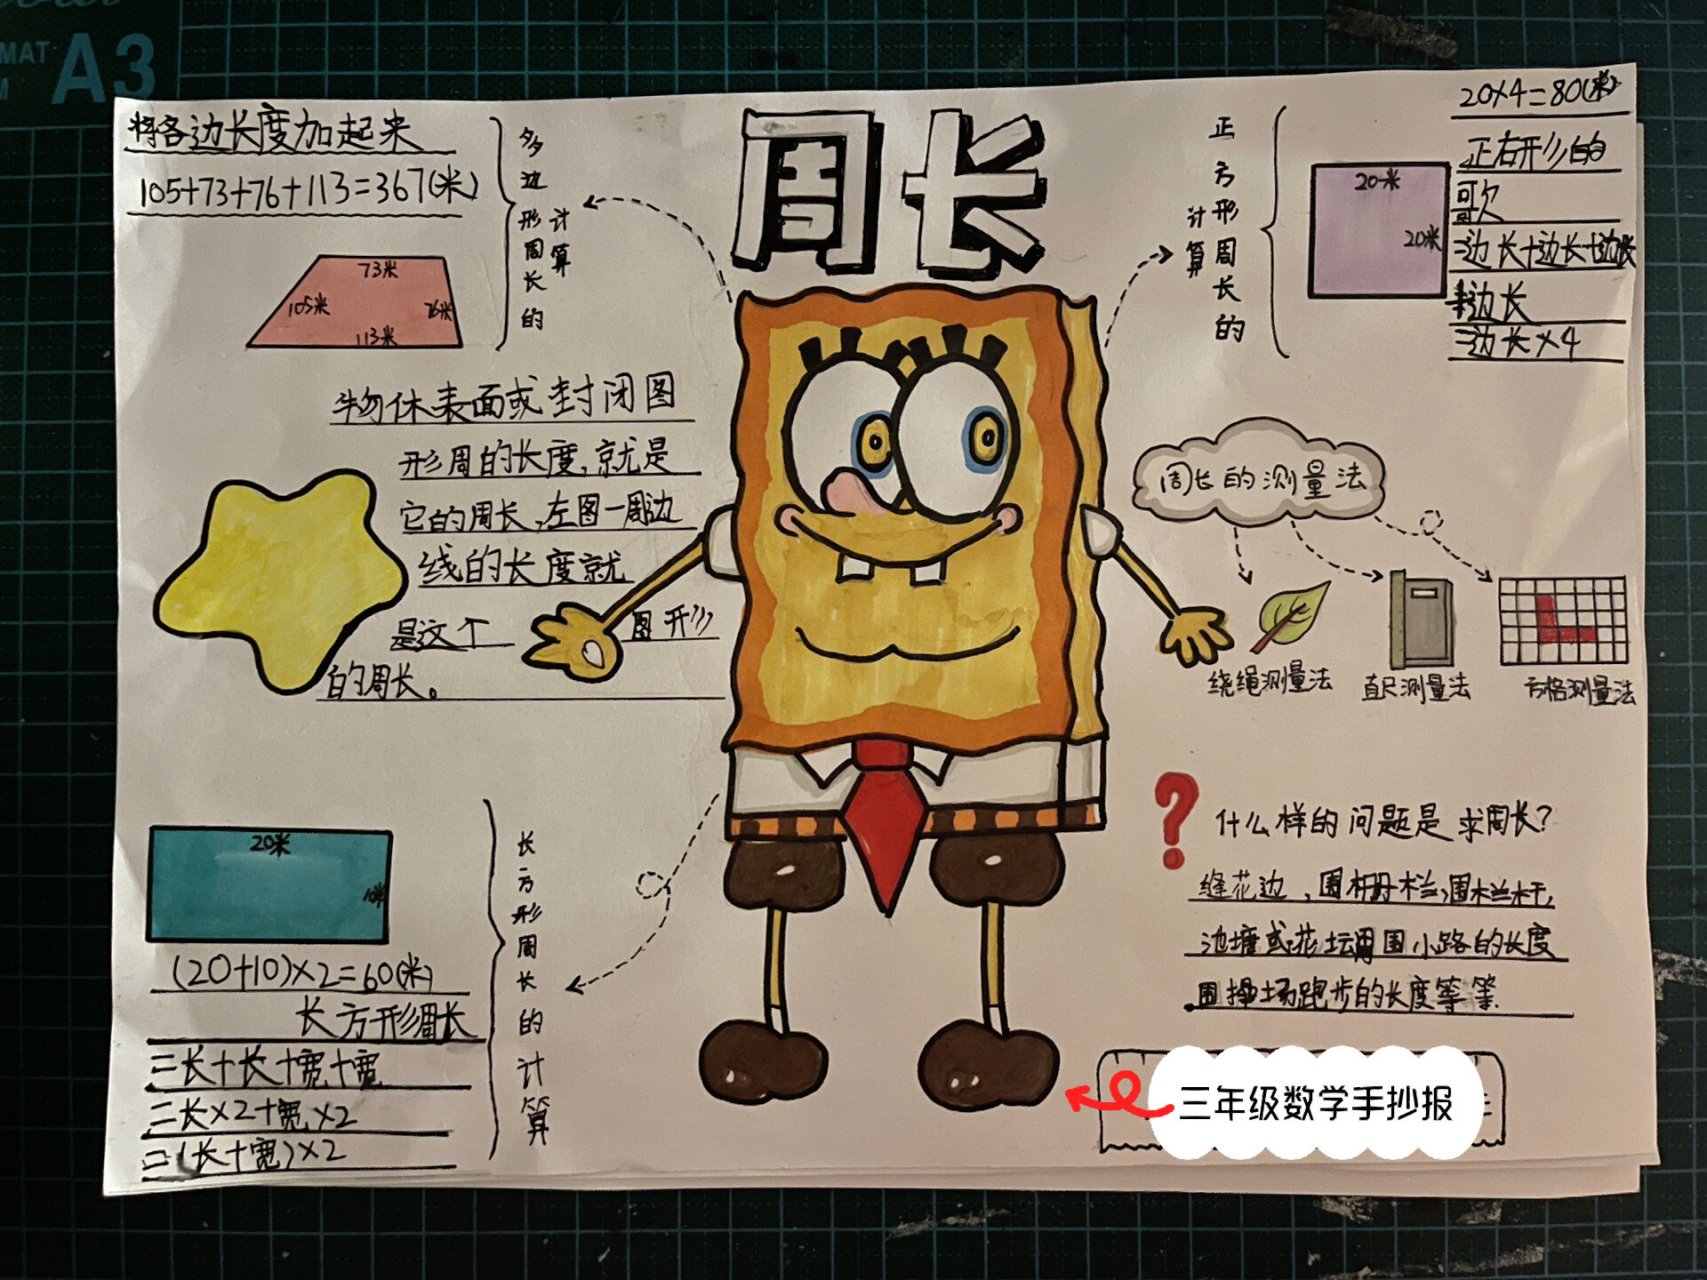 A3
周长
将各边长度加起来
105+73+76+113=367(米)
多边形周长的计算
73米
105米
76米
113米
20×4=80(米)
正方形周长的计算
20米
20米
正右形的
=边长+边长+边长
+边长
=边长×4
物体表面或封闭图
形周的长度,就是
它的周长,左图一周边
线的长度就
是这个 图形
的周长。
周长的测量法
绕绳测量法
直尺测量法
方格测量法
20米
10米
(20+10)×2=60(米)
长方形周长
=长+长+宽+宽
=长×2+宽×2
=(长+宽)×2
长方形周长的计算
?什么样的问题是求周长?
缝花边,围栅栏,围栏杆,
池塘或花坛周围小路的长度
围操场跑步的长度等等.
三年级数学手抄报